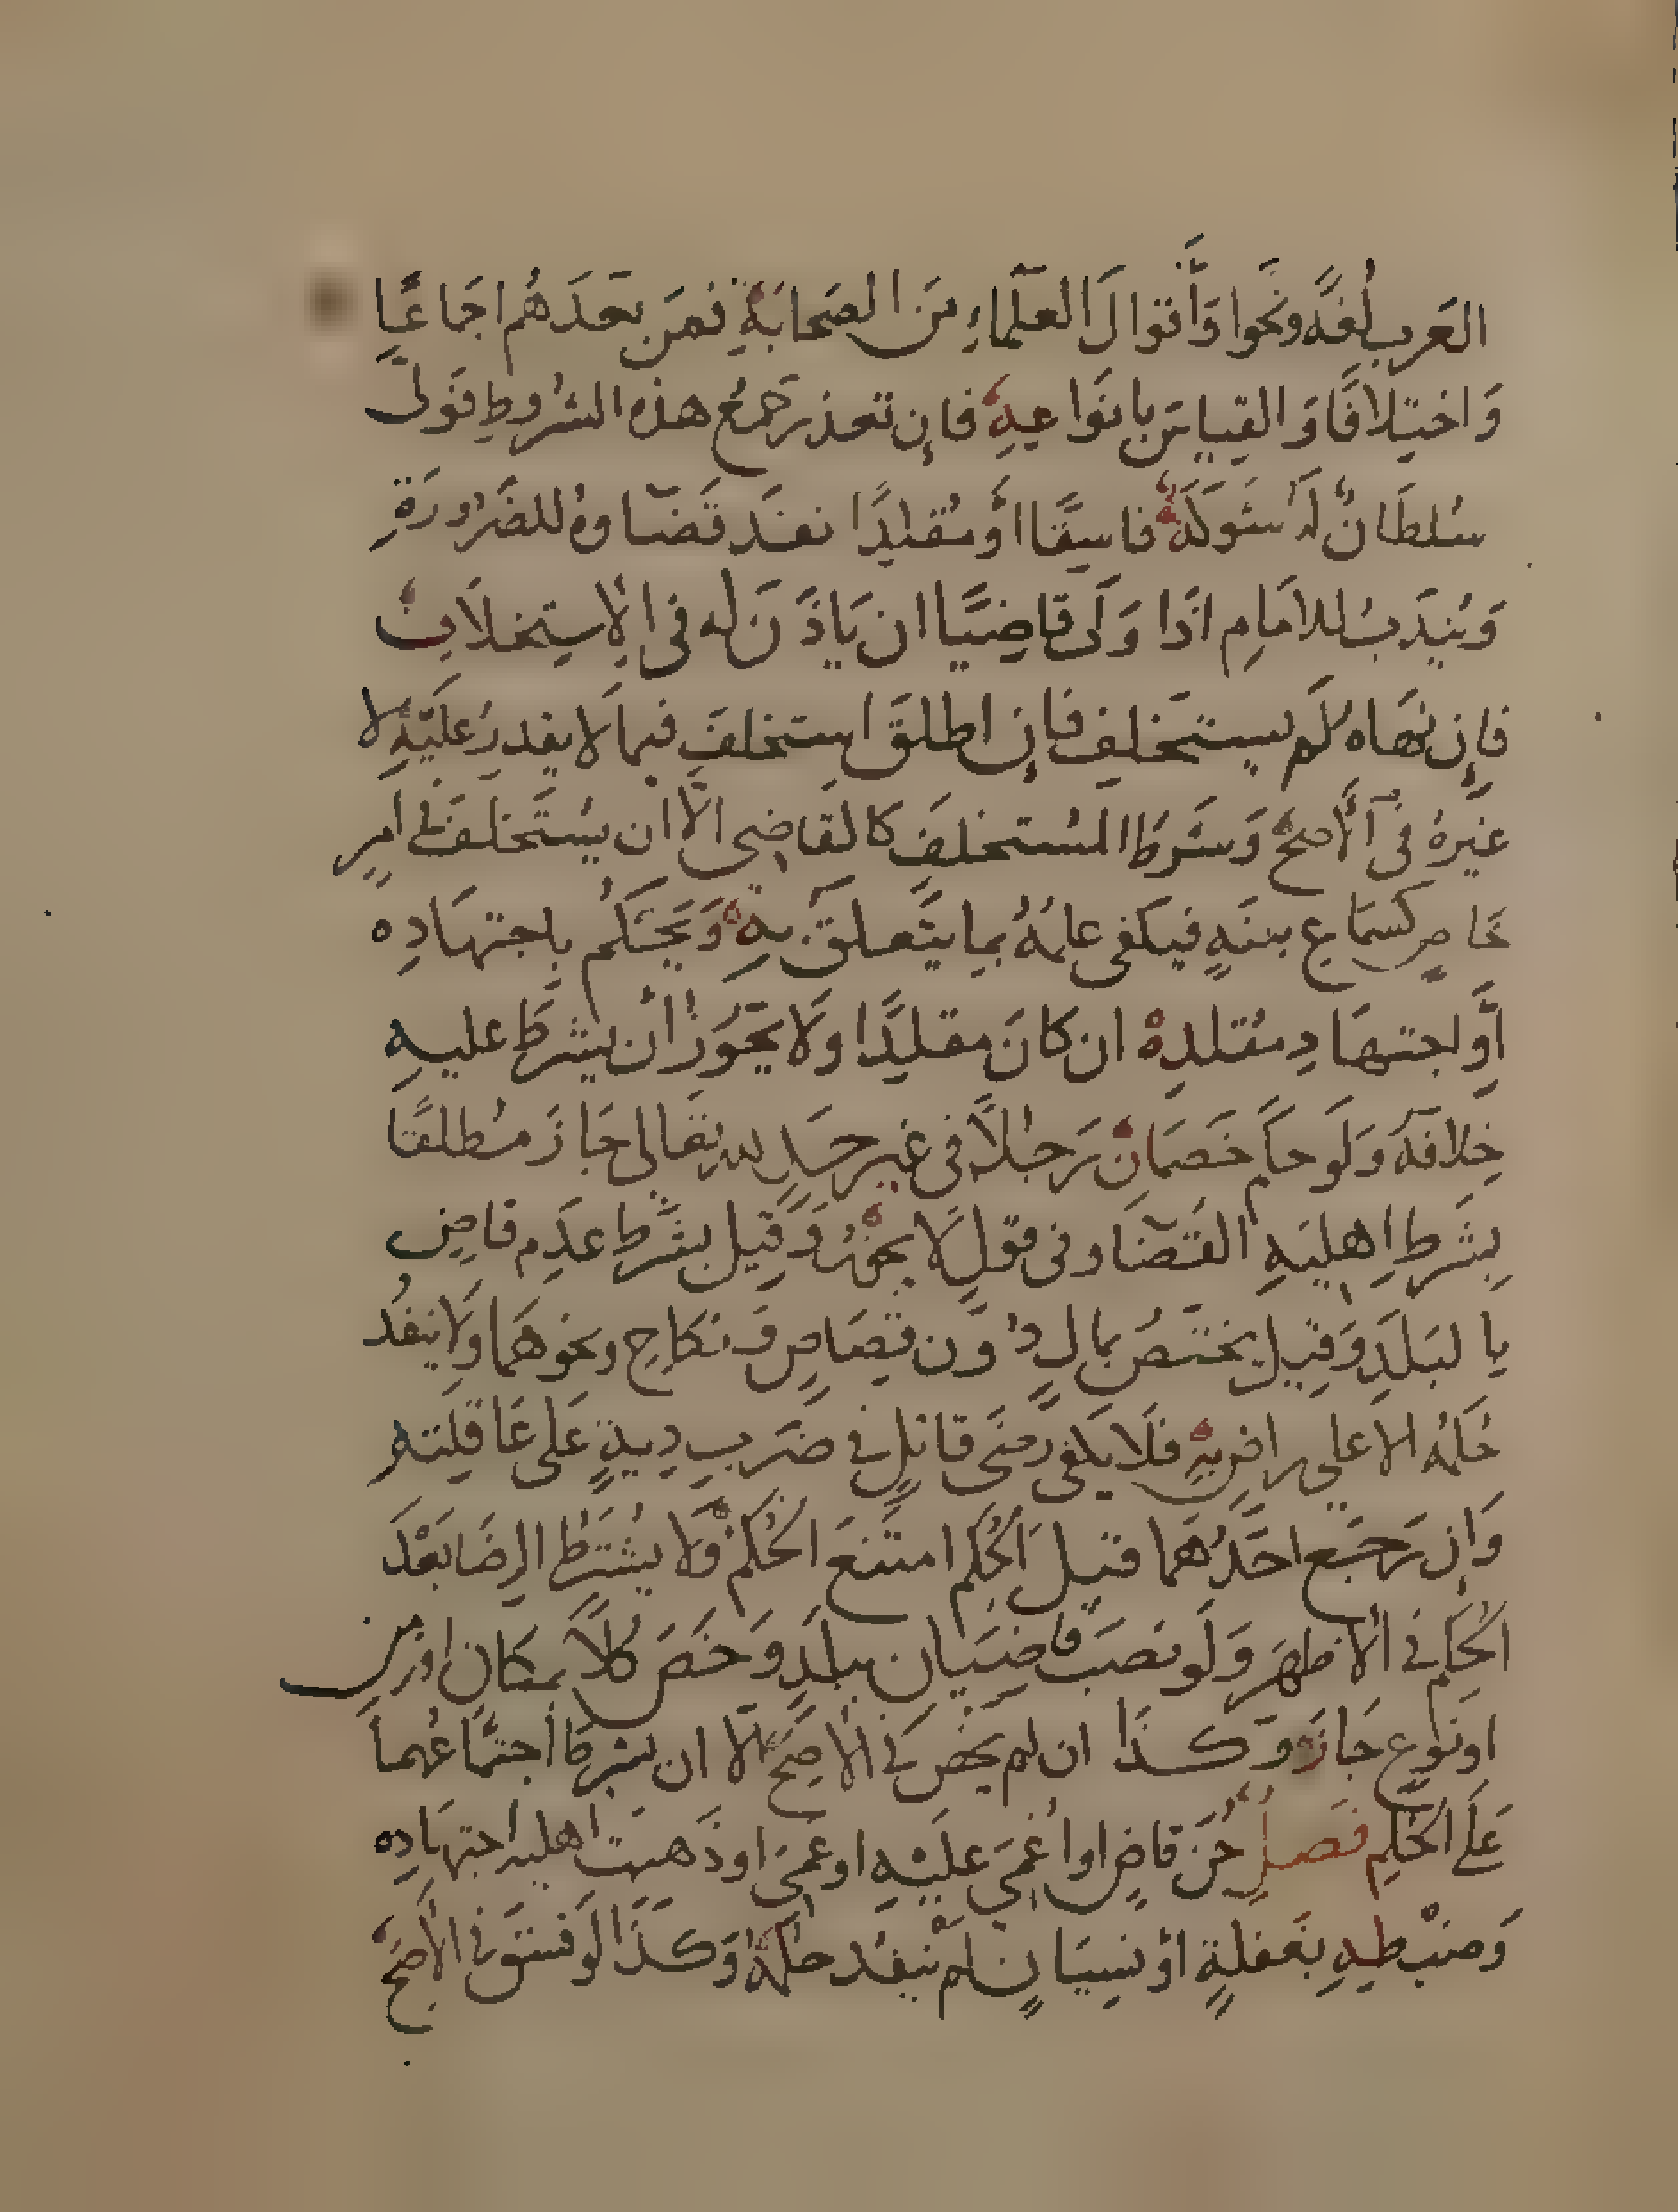 العَرب لُغةً ونَحوا وَأَقوالَ العلَماءِ مِنَ الصَحابَةِ فمَن بَعدَهُم اجماعًا
وَاختِلافًا وَالقِياسَ بِانوَاعِهِ فَإن تعذر جَمعُ هذه الشروطِ فَوَلى
سُلطَانٌ لَهُ شَوكَةٌ فاسِقًا أَو مُقلدًا نفَذَ قَضَاوهُ للضَرُورَةِ
وَيُندَبُ للامَامِ اذَا وَلى قاضِيًا ان يَاذَنَ له فى الاستِخلَافِ
فَإن نهَاه لَم يستَخلِف فَإن اطلقَ استَخلَفَ فيما لا يقدِرُ عَلَيهِ لا
غيرهُ فى الأَصَحِّ وَشَرطُ المُستخلَف كالقاضِى الا ان يستَخلفَ فى امرٍ
خاصٍ كسَماعِ بينَةٍ فيَكفى عِلمُهُ بما يتَعلقَ بِهِ وَيَحكُم بِاجتهادِه
أَو اجتهَادِ مُقلدِهْ ان كانَ مقلِدًا وَلا يَجُوزُ أن يشرطَ عليهِ
خِلافَهُ وَلَو حكَم خَصمَانِ رَجلًا فى غيرِ حَدٍ للهِ تعَالى جَازَ مُطلقًا
بِشَرطِ اهليَهِ القَضَا وفى قولٍ لا يجوزُ وَقيل بشرط عَدَم قاضٍ
بالبَلَدِ وَقيل يختَصُ بمالٍ دُونَ قصَاصٍ وَنكاحٍ ونحوهما وَلا ينفُذُ
حُكمُهُ الا على راضٍ بِهِ فلَا يَكفى رِضَى قاتِلٍ فى ضَربِ دِيةٍ عَلى عَاقِلَتهِ
وَان رَجَع احَدُهُمَا قبل الحُكم امتَنعَ الحُكم وَلا يُشتَرَطُ الرِضَا بَعْدَ
الحُكم فى الاظهَر وَلَو نصَبَ قاضِيَانِ ببلَدٍ وَخَصَ كلًا بمكان او زمن
او نوعٍ جَازَ وَكذَا ان لم يخص فى الاصَحِ الا ان يشرطَ اجتمَاعُهما
عَلَى الحُكمِ فصلٌ جُنَ قاضٍ او اُغمِىَ عَليْهِ او عَمِىَ او ذَهبَت اهليه اجتهَادِه
وَضبْطِهِ بغَفلَةٍ اوْ نِسيَانٍ لَم ينفُذ حكمُهُ وَكذَا لَو فسَقَ فى الأصَحِّ